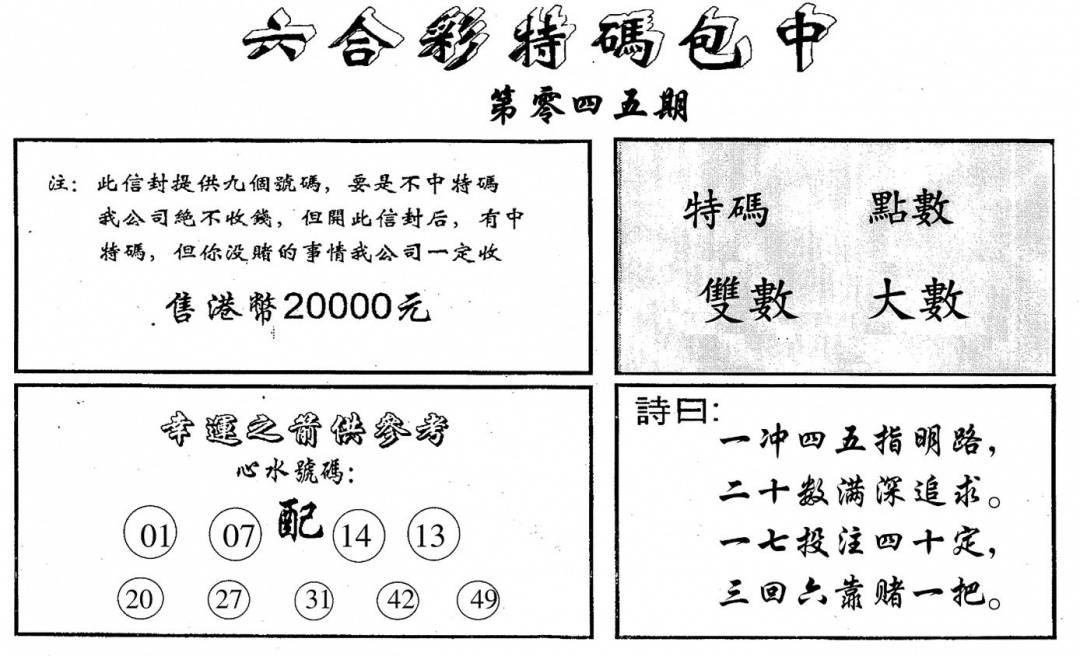 六合彩特碼包中
第零四五期
注：此信封提供九個號碼，要是不中特碼
我公司絕不收錢，但開此信封后，有中
特碼，但你没賭的事情我公司一定收
售港幣20000元
特碼 點數
雙數 大數
幸運之箭供參考
心水號碼：
01 07 配 14 13
20 27 31 42 49
詩曰：
一冲四五指明路，
二十数满深追求。
一七投注四十定，
三回六靠赌一把。